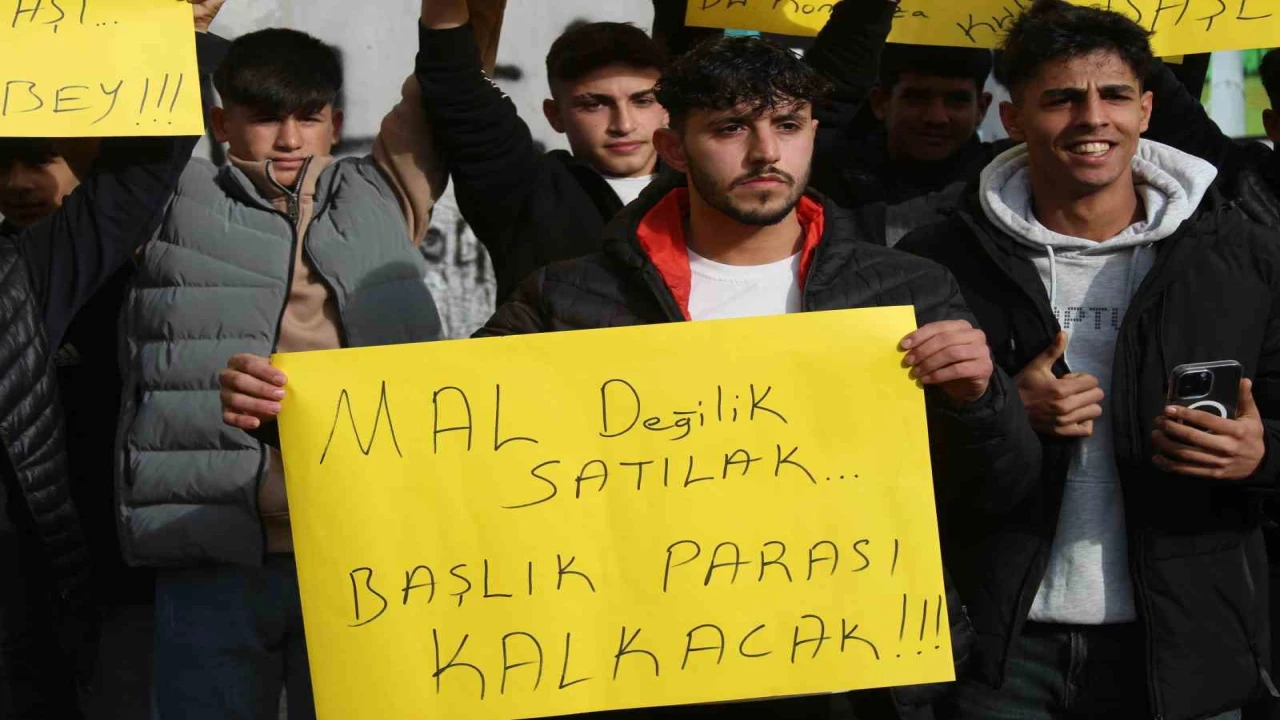 AŞI...
BEY!!!
MAL Değilik
SATILAK...
BAŞLIK PARASI
KALKACAK!!!